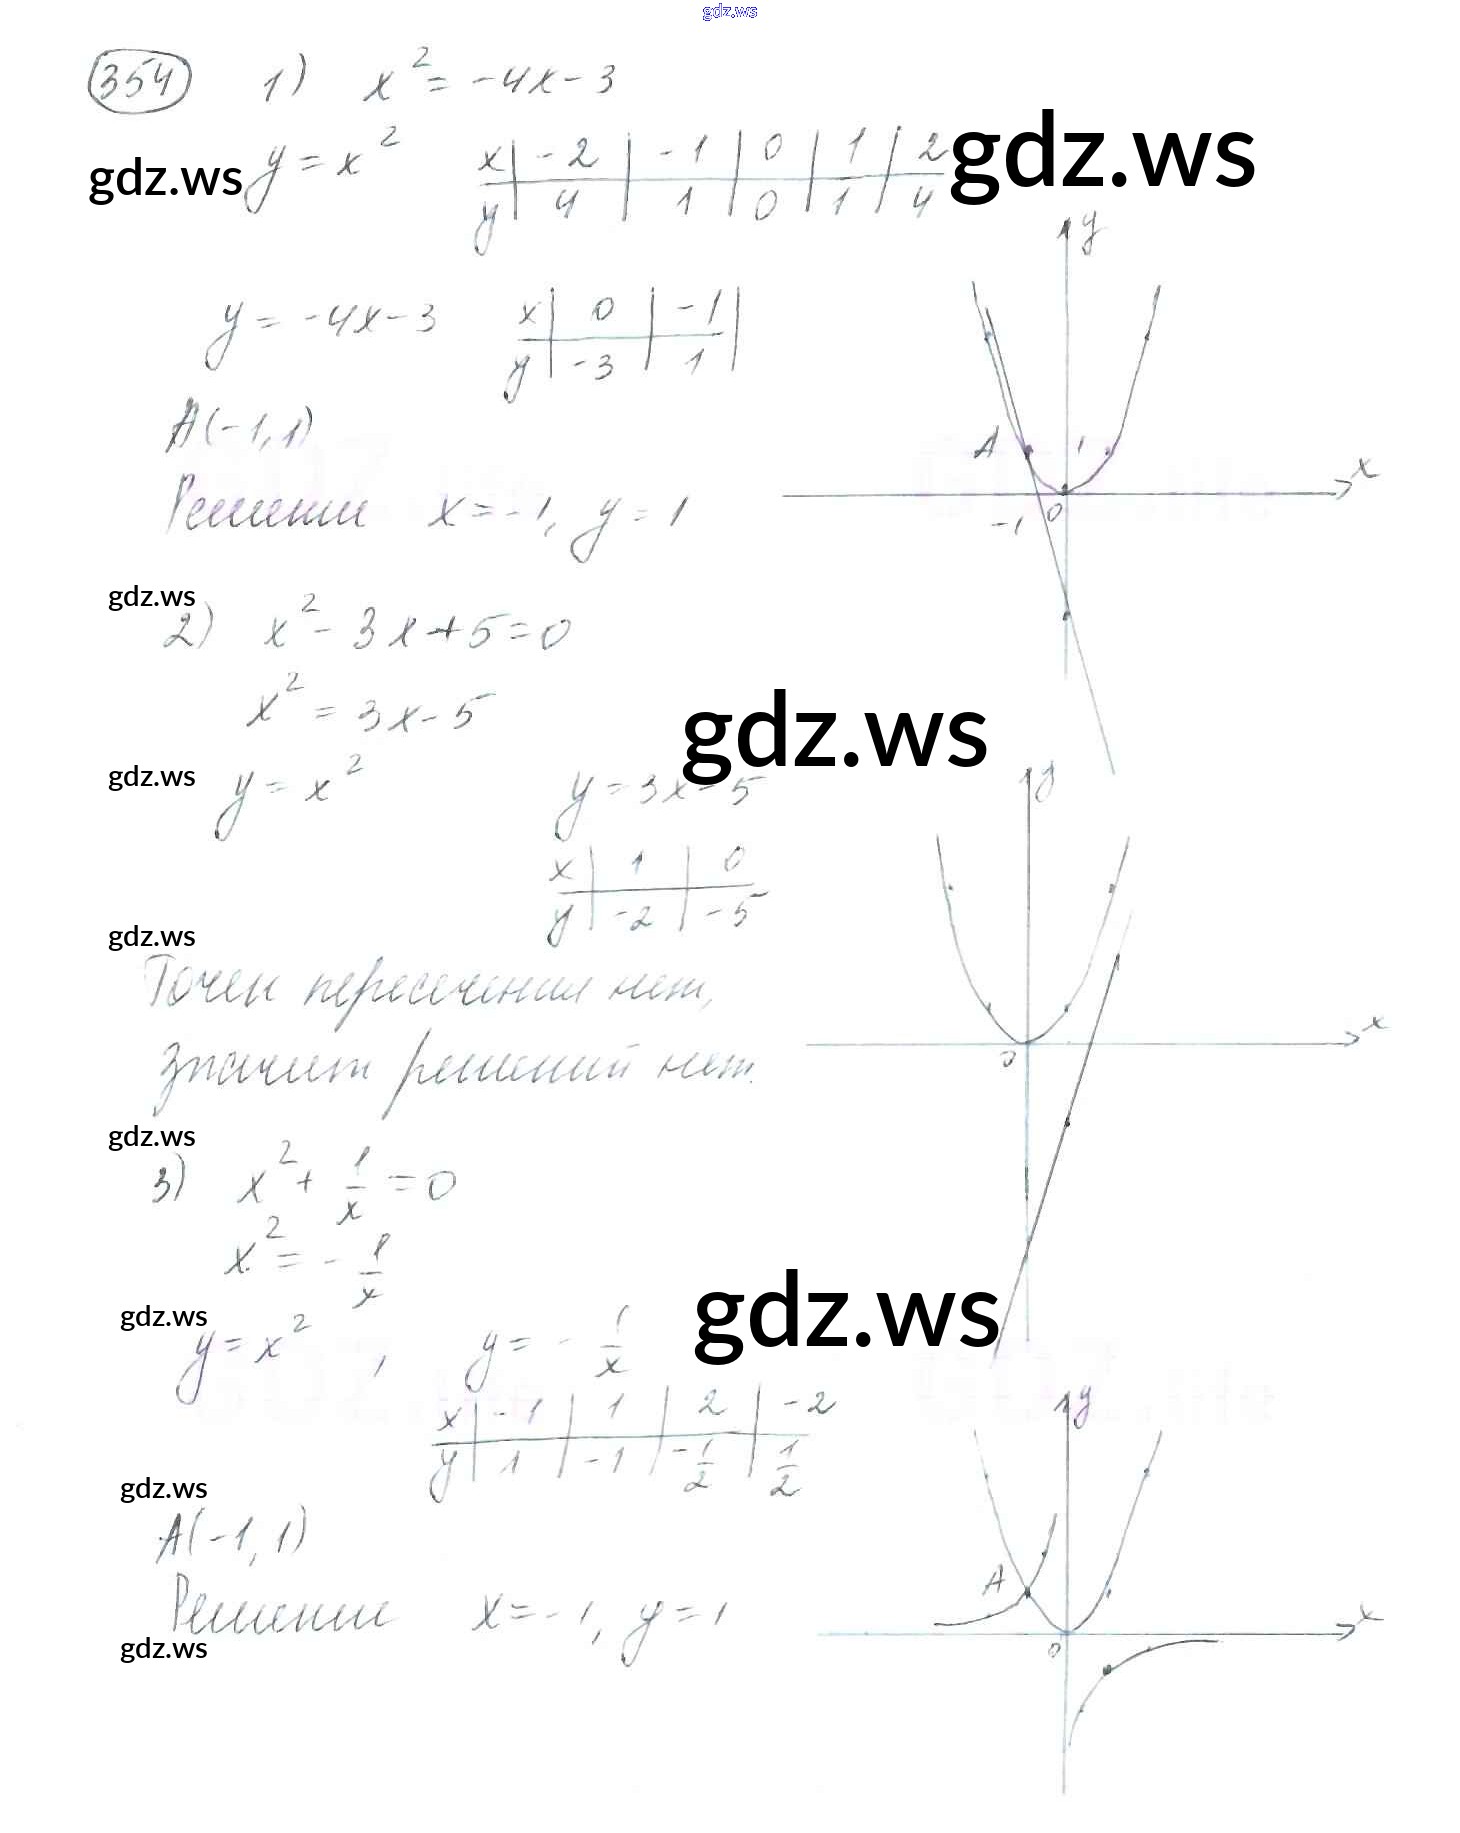 gdz.ws
354 1) x² = -4x-3
gdz.ws y = x² x | -2 | -1 | 0 | 1 | 2 gdz.ws
y | 4 | 1 | 0 | 1 | 4
y
y = -4x-3 x | 0 | -1 |
y | -3 | 1 |
A(-1, 1)
A 1 x
-1 0
Решении x = -1, y = 1
gdz.ws
2) x² - 3x + 5 = 0
x² = 3x - 5 gdz.ws
gdz.ws y = x² y = 3x - 5 y
x | 1 | 0
y | -2 | -5
gdz.ws
Точек пересечения нет,
x
0
значит решений нет.
gdz.ws
3) x² + 1/x = 0
x² = - 1/x
gdz.ws gdz.ws
y = x² , y = - 1/x
x | -1 | 1 | 2 | -2 y
y | 1 | -1 | -1/2 | 1/2
gdz.ws
A(-1, 1)
A x
0
Решении x = -1, y = 1
gdz.ws